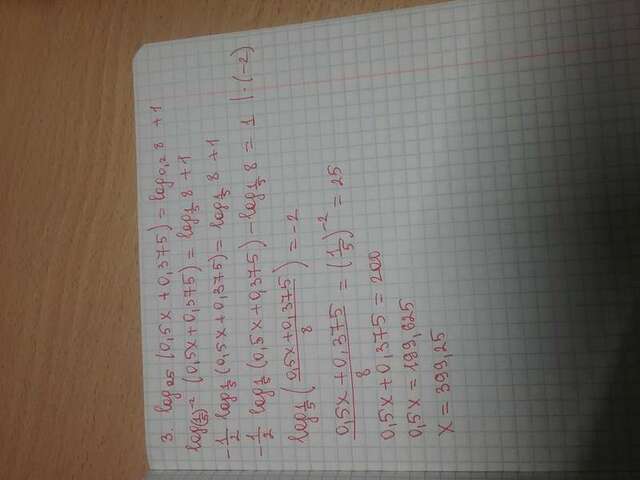 3. log₂₅ (0,5x + 0,375) = log₀,₂ 8 + 1
log_(1/5)⁻² (0,5x + 0,375) = log_1/5 8 + 1
- 1/2 log_1/5 (0,5x + 0,375) = log_1/5 8 + 1
- 1/2 log_1/5 (0,5x + 0,375) - log_1/5 8 = 1 | · (-2)
log_1/5 ((0,5x + 0,375)/8) = -2
(0,5x + 0,375)/8 = (1/5)⁻² = 25
0,5x + 0,375 = 200
0,5x = 199,625
x = 399,25